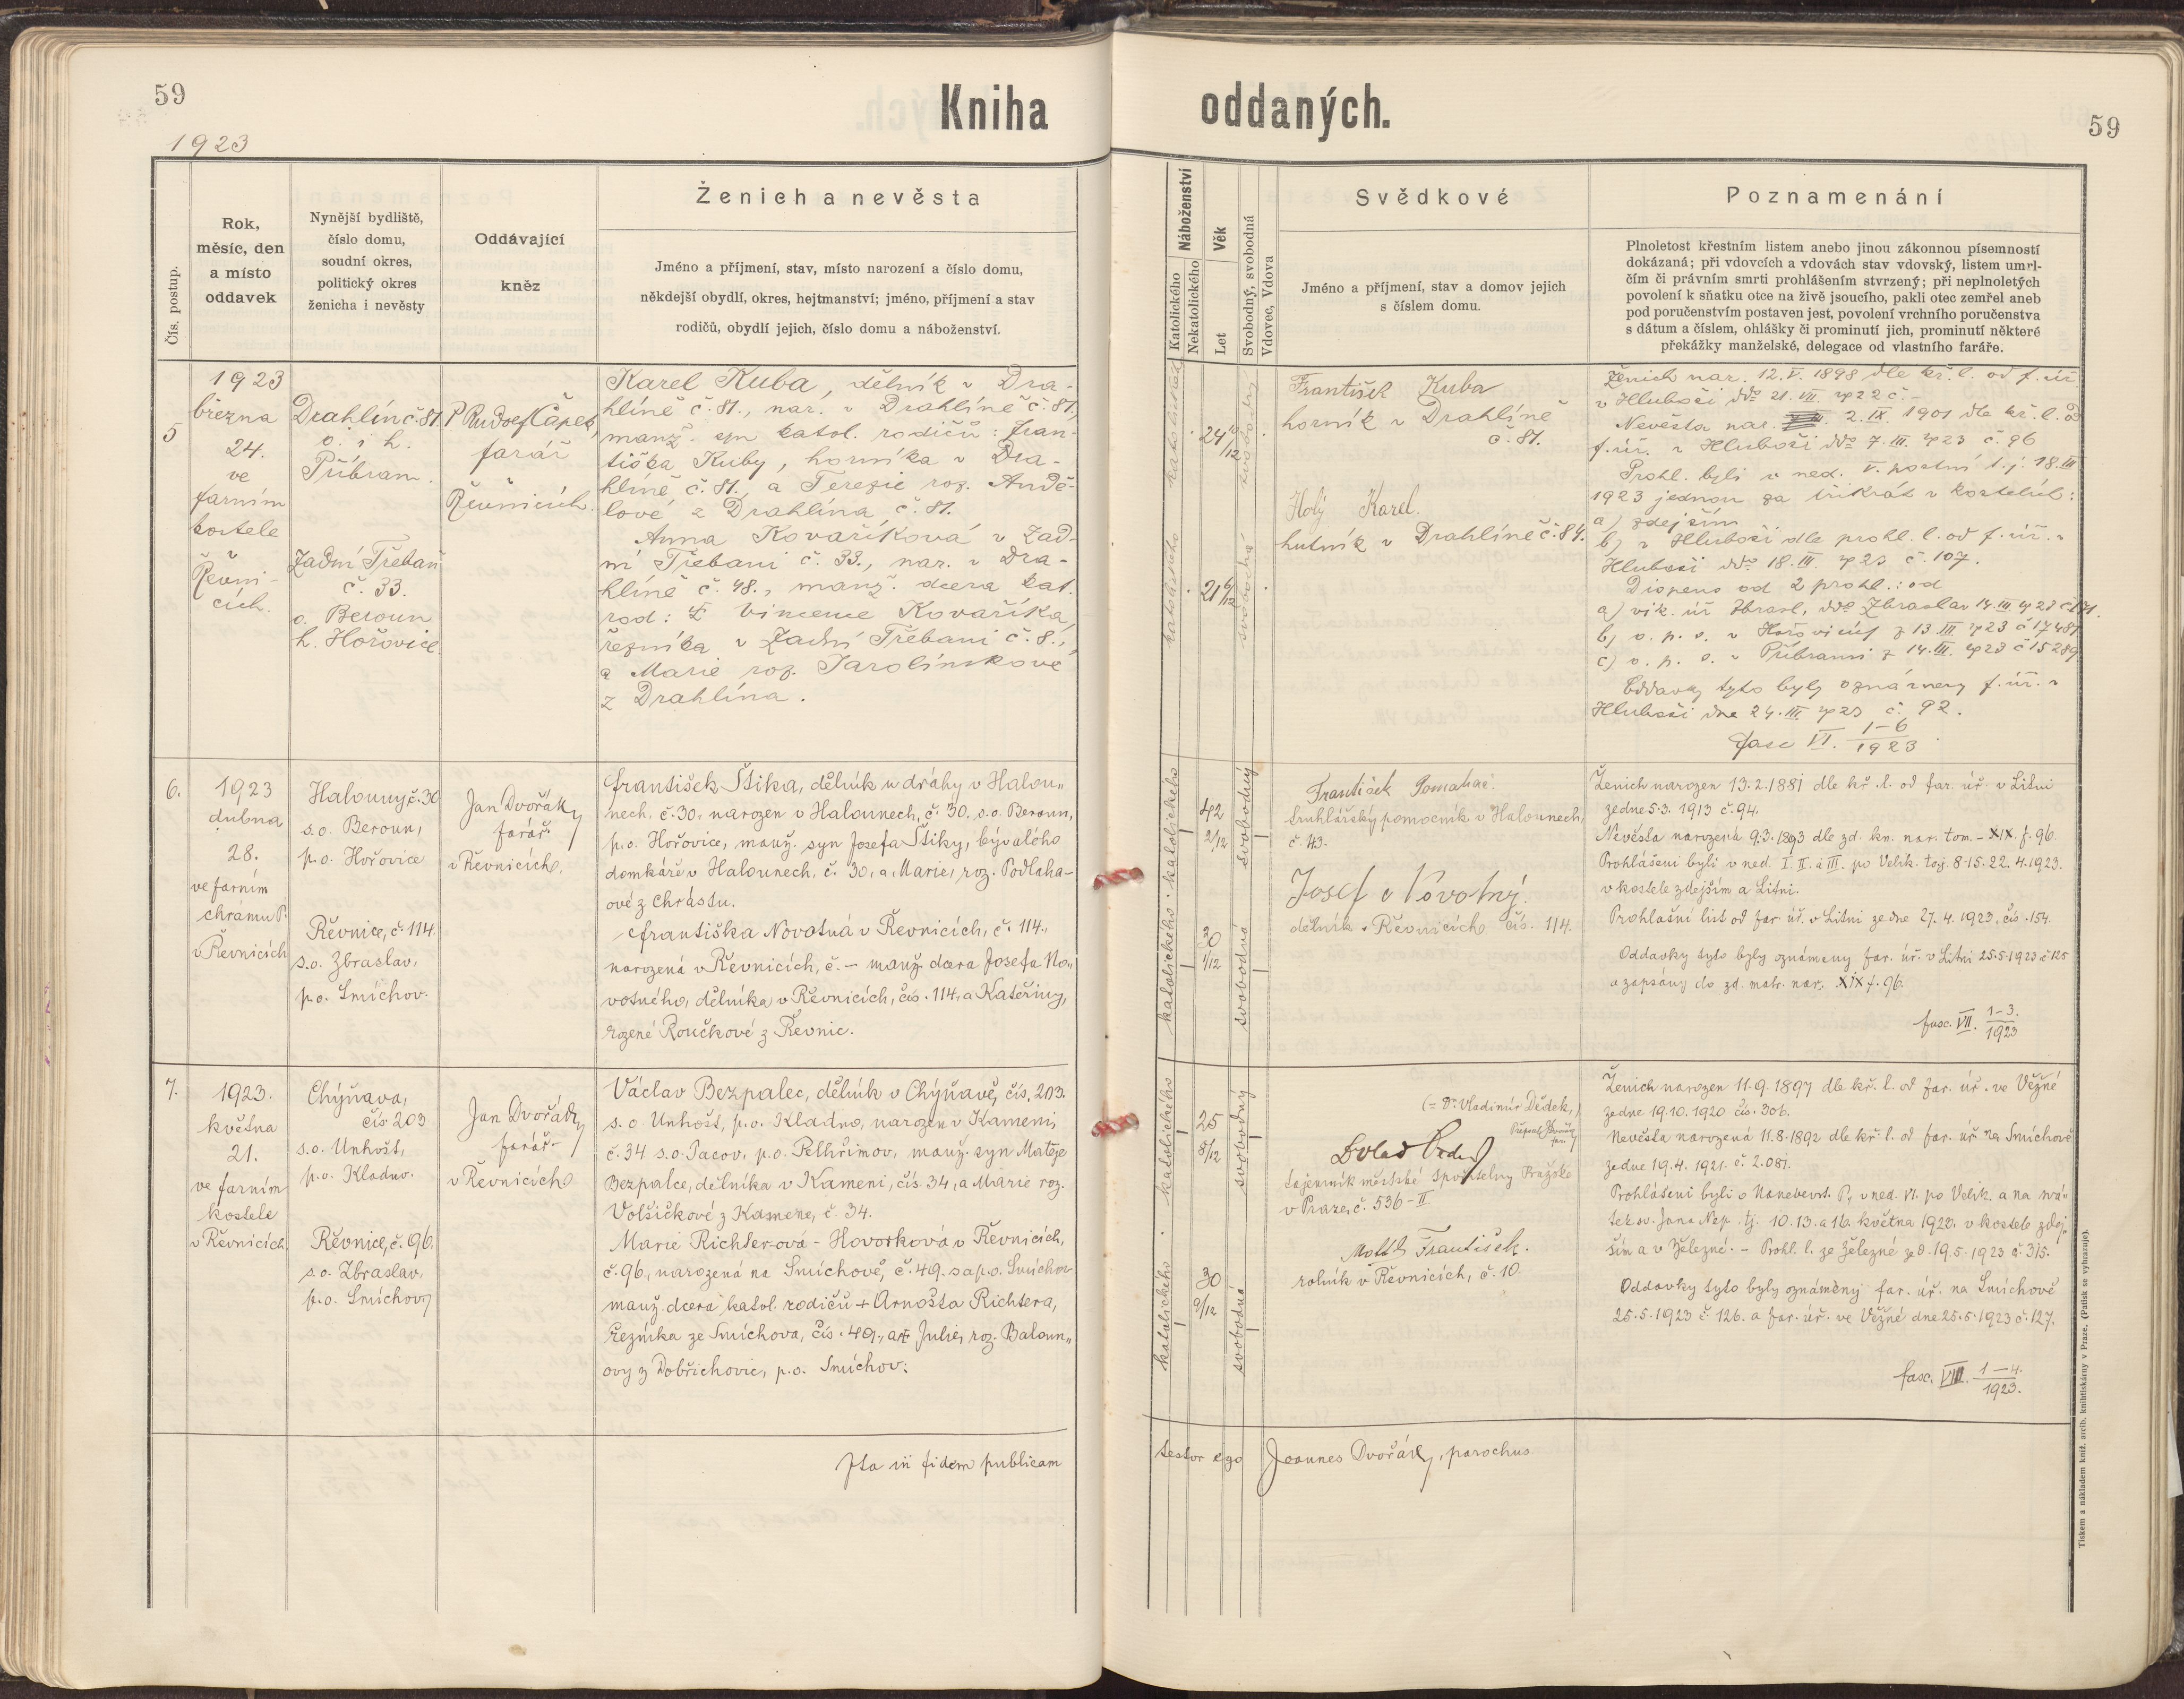 59
Kniha oddaných.
59
1923
Čís. postup.
Rok,
měsíc, den
a místo
oddavek
Nynější bydliště,
číslo domu,
soudní okres,
politický okres
ženicha i nevěsty
Oddávající
kněz
Ženich a nevěsta
Jméno a příjmení, stav, místo narození a číslo domu,
někdejší obydlí, okres, hejtmanství; jméno, příjmení a stav
rodičů, obydlí jejich, číslo domu a náboženství.
Náboženství
Katolického
Nekatolického
Věk
Let
Svobodný, svobodná
Vdovec, Vdova
Svědkové
Jméno a příjmení, stav a domov jejich
s číslem domu.
Poznamenání
Plnoletost křestním listem anebo jinou zákonnou písemností
dokázaná; při vdovcích a vdovách stav vdovský, listem umrl-
čím či právním smrti prohlášením stvrzený; při neplnoletých
povolení k sňatku otce na živě jsoucího, pakli otec zemřel aneb
pod poručenstvím postaven jest, povolení vrchního poručenstva
s dátum a číslem, ohlášky či prominutí jich, prominutí některé
překážky manželské, delegace od vlastního faráře.
5
1923
března
24.
ve
farním
kostele
v
Řevni-
cích.
Drahlín č. 81.
o. i h.
Příbram.
Zadní Třebaň
č. 33.
o. Beroun
h. Hořovice.
P. Rudolf Čapek,
farář
Řevnicích.
Karel Kuba, dělník v Dra-
hlíně č. 81., nar. v Drahlíně č. 81,
manž. syn katol. rodičů: Fran-
tiška Kuby, horníka v Dra-
hlíně č. 81., a Terezie roz. Andě-
lové z Drahlína č. 81.
Anna Kovaříková v Zad-
ní Třebani č. 33., nar. v Dra-
hlíně č. 48., manž. dcera kat.
rod: Vincence Kovaříka,
řezníka v Zadní Třebani č. 8.,
a Marie roz. Jarolímkové
z Drahlína.
katolického
katolického
24 10/12
21 6/12
svobodný
svobodná
František Kuba
horník v Drahlíně
č. 81.
Holý Karel.
hutník v Drahlíně č. 84.
Ženich nar. 12. V. 1898 dle kř. l. od f. úř.
v Hluboši ddo 21. VII. 922 č. -
Nevěsta nar. 2. IX. 1901 dle kř. l. od
f. úř. v Hluboši ddo 7. III. 923 č. 96
Prohl. byli v ned. V. postní t. j. 18. III
1923 jednou za třikrát v kostelích:
a) zdejším
b) v Hluboši dle prohl. l. od f. úř. v
Hluboši ddo 18. III. 923 č. 107.
Dispens od 2 prohl.: od
a) vik. úř. Zbrasl. ddo Zbraslav 14. III. 923
b) o. p. s. v Hořovicích z 13. III. 923 č 17481
c) o. p. s. v Příbrami z 14. III. 923 č 15289
Oddavky tyto byly oznámeny f. úř. v
Hluboši dne 24. III. 923 č. 92.
fasc VI. 1-6/1923
6.
1923
dubna
28.
ve farním
chrámu P.
v Řevnicích
Halouny č. 30
s.o. Beroun,
p.o. Hořovice
Řevnice, č. 114.
s.o. Zbraslav,
p.o. Smíchov.
Jan Dvořák,
farář
v Řevnicích.
František Štika, dělník u dráhy v Haloun„
nech, č. 30, narozen v Halounech, č. 30, s.o. Beroun,
p.o. Hořovice, manž. syn Josefa Štiky, bývalého
domkáře v Halounech, č. 30, a Marie, roz. Podlaha-
ové z Chrástu.
Františka Novotná v Řevnicích, č. 114.,
narozená v Řevnicích, č. - manž. dcera Josefa No„
votného, dělníka v Řevnicích, čís. 114, a Kateřiny,
rozené Roučkové z Řevnic.
katolického
katolického
42 2/12
30 1/12
svobodný
svobodná
František
truhlářský pomocník v Halounech,
č. 43.
Josef Novotný.
dělník v Řevnicích čís. 114.
Ženich narozen 13.2.1881 dle kř. l. od far. úř. v Litni
ze dne 5.3. 1913 č. 94.
Nevěsta narozená 9.3.1893 dle zd. kn. nar. tom. - XIX. f. 96.
Prohlášeni byli v ned. I. II. a III. po Velik. t.j. 8. 15. 22. 4. 1923.
v kostele zdejším a Litni.
Prohlašní list od far. úř. v Litni ze dne 27. 4. 1923, čís. 154.
Oddavky tyto byly oznámeny far. úř. v Litni 25.5.1923 č 125
a zapsány do zd. matr. nar. XIX f. 96.
fasc. VII. 1-3./1923
7.
1923.
května
21.
ve farním
kostele
v Řevnicích.
Chýňava,
čís 203
s.o. Unhošť,
p.o. Kladno.
Řevnice, č. 96.
s.o. Zbraslav,
p.o. Smíchov
Jan Dvořák,
farář
v Řevnicích
Václav Bezpalec, dělník v Chýňavě, čís. 203.
s.o. Unhošť, p.o. Kladno, narozen v Kameni
č. 34 s.o. Pacov, p.o. Pelhřimov, manž. syn Matěje
Bezpalce, dělníka v Kameni, čís. 34, a Marie roz.
Volšičkové z Kamene, č. 34.
Marie Richter-ová - Hovorková v Řevnicích,
č. 96, narozená na Smíchově, č. 49. s a p.o. Smíchov
manž. dcera katol. rodičů + Arnošta Richtera,
řezníka ze Smíchova, čís. 49., a + Julie, roz. Baloun„
ovy z Dobřichovic, p.o. Smíchov.
katolického
katolického
25 8/12
30 9/12
svobodný
svobodná
(= Dr. Vladimír Dědek,)
tajemník městské spořitelny Pražské
v Praze, č. 536 - II
František.
rolník v Řevnicích, č. 10.
Ženich narozen 11.9.1897 dle kř. l. od far. úř. ve Věžné
ze dne 19.10.1920 čís. 306.
Nevěsta narozená 11.8.1892 dle kř. l. od far. úř. na Smíchově
ze dne 19.4. 1921. č. 2.081.
Prohlášeni byli o Nanebevst. P., v ned. VI. po Velik. a na svá„
tek sv. Jana Nep. tj. 10. 13. a 16. května 1923. v kostele zdej„
ším a v Železné. - Prohl. l. ze Železné ze d. 19.5.1923 č. 315.
Oddavky tyto byly oznámeny far. úř. na Smíchově
25.5.1923 č. 126. a far. úř. ve Věžné dne 25.5.1923 č. 127.
fasc. VIII. 1-4./1923.
Ita in fidem publicam
testor ego Joannes Dvořák, parochus
Tiskem a nákladem kníž. arcib. knihtiskárny v Praze. (Patisk se vyhrazuje).